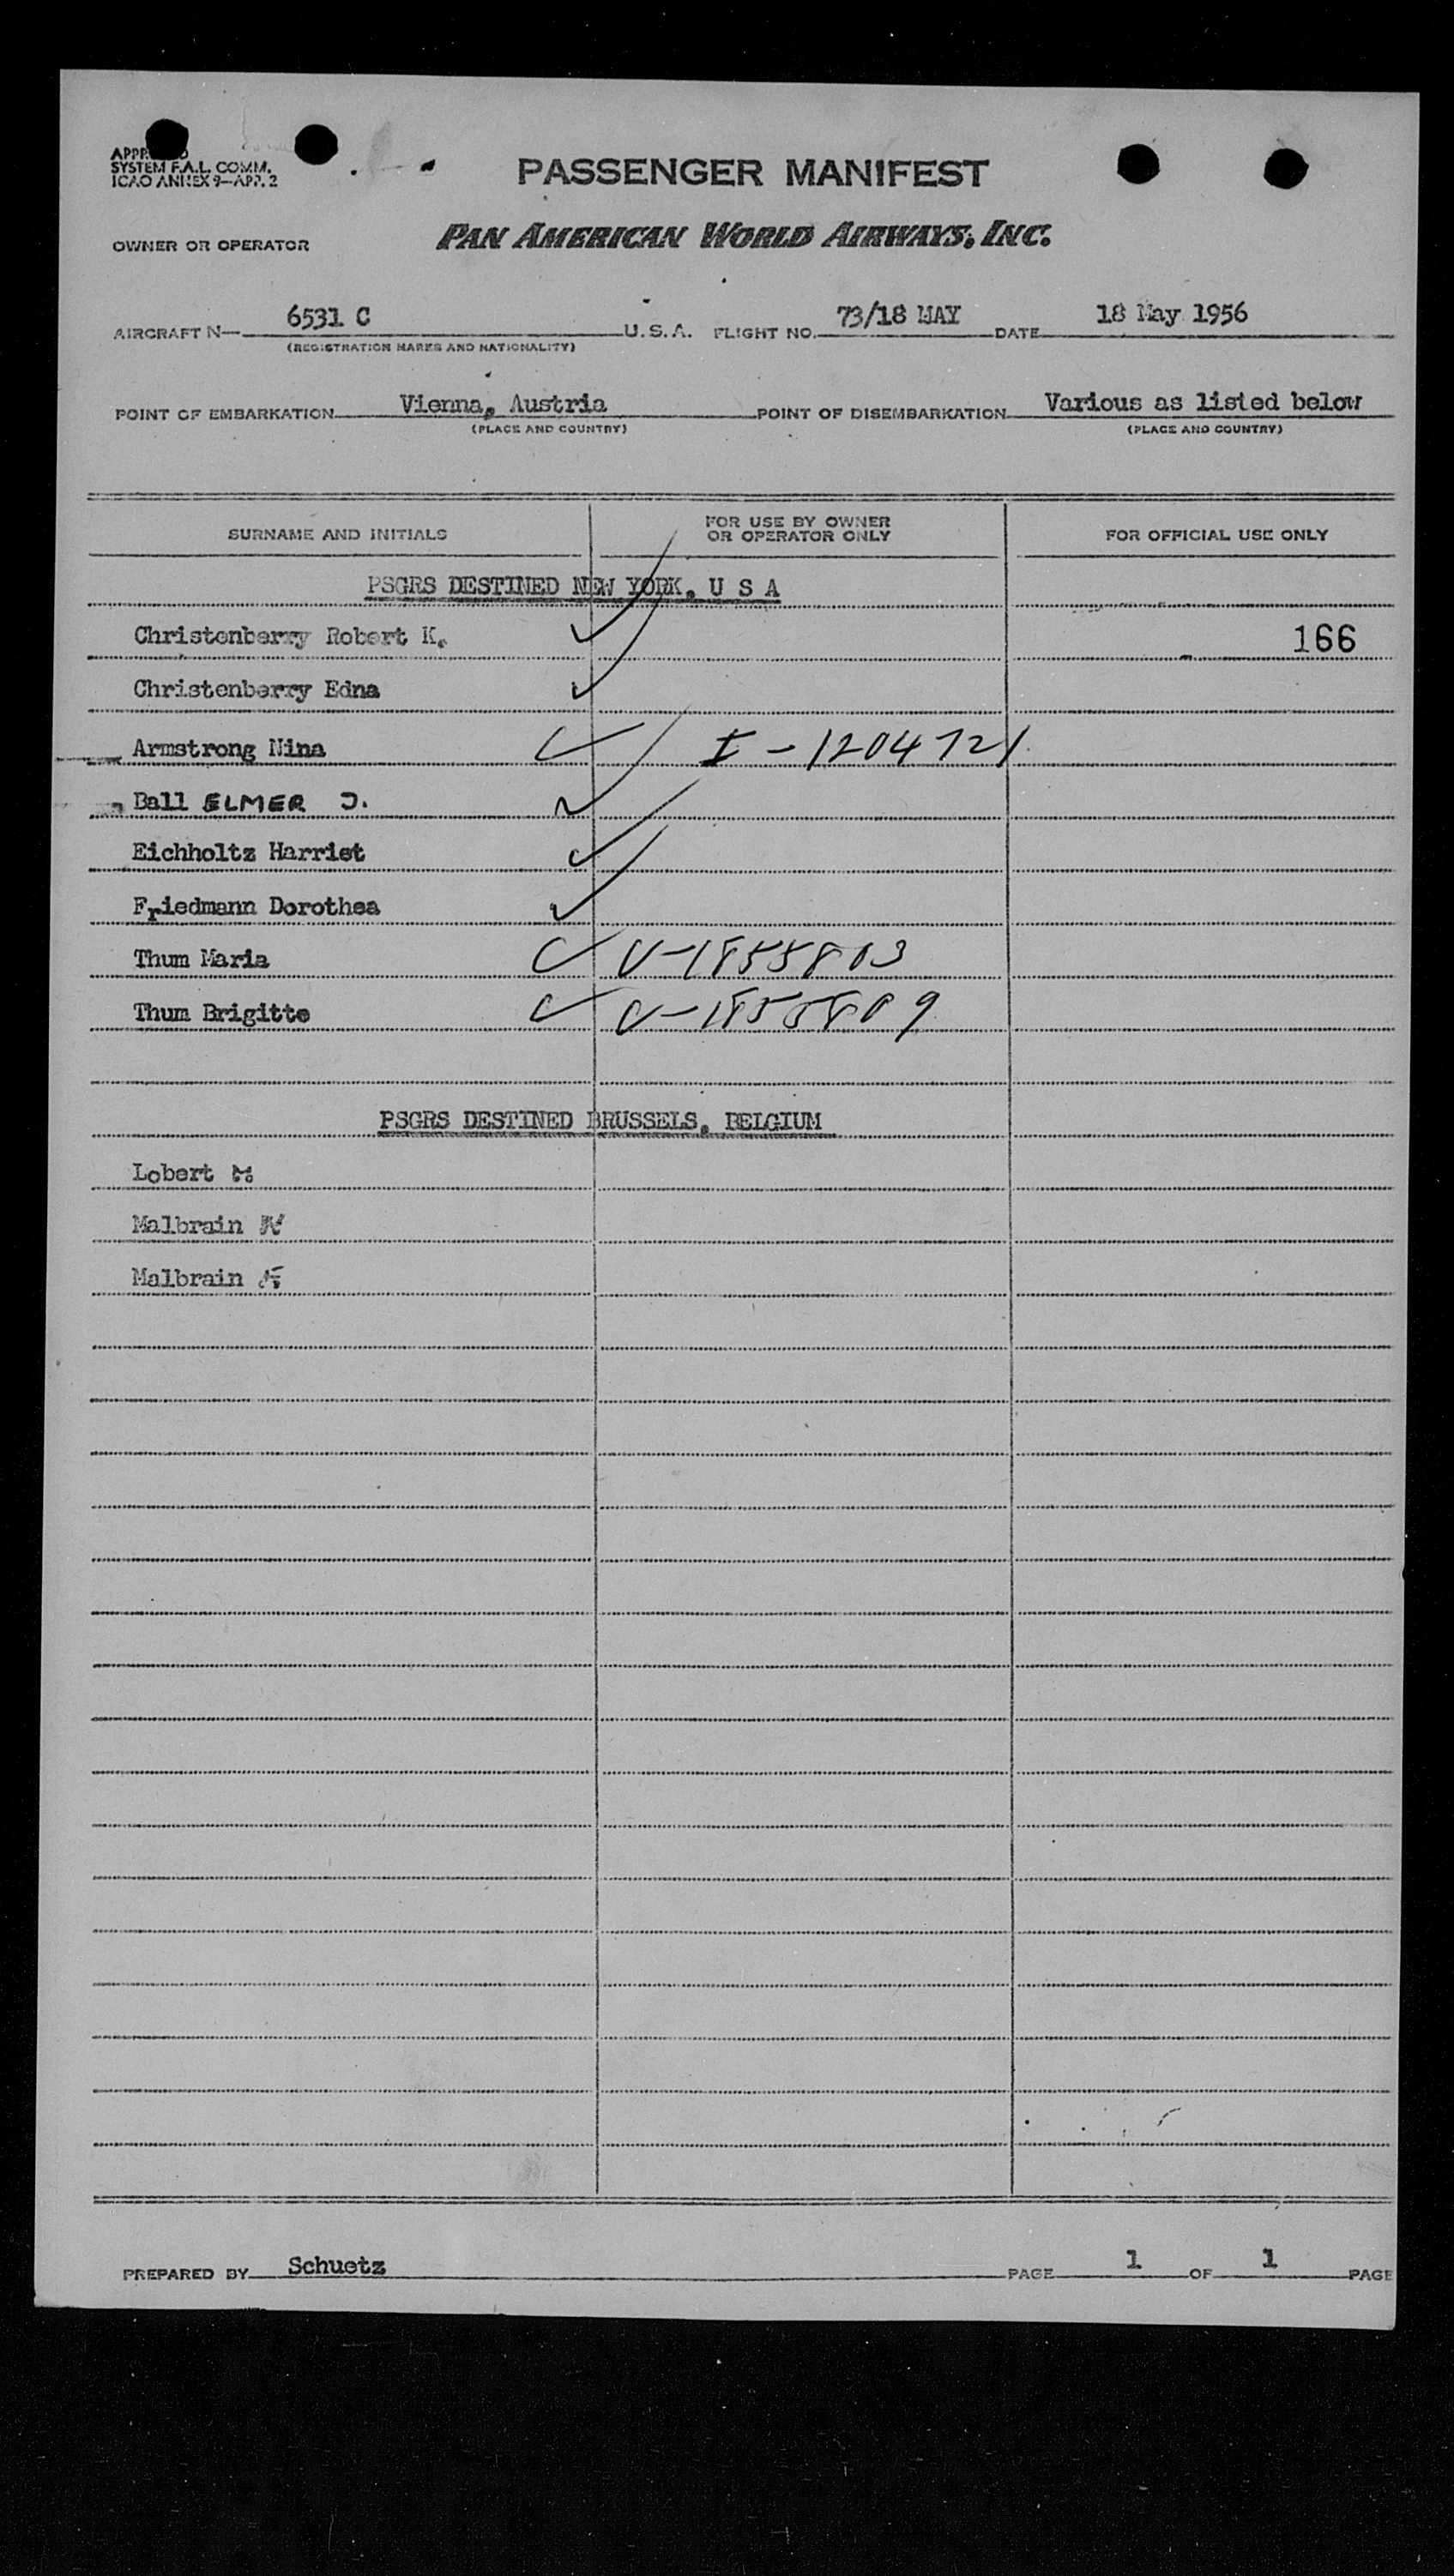 APPR
SYSTEM F.A.L. COMM.
ICAO ANNEX 9—APP. 2
PASSENGER MANIFEST
OWNER OR OPERATOR PAN AMERICAN WORLD AIRWAYS, INC.
AIRCRAFT N— 6531 C U.S.A. FLIGHT NO. 73/18 MAY DATE 18 May 1956
(REGISTRATION MARKS AND NATIONALITY)
POINT OF EMBARKATION Vienna, Austria POINT OF DISEMBARKATION Various as listed below
(PLACE AND COUNTRY) (PLACE AND COUNTRY)
SURNAME AND INITIALS FOR USE BY OWNER OR OPERATOR ONLY FOR OFFICIAL USE ONLY
PSGRS DESTINED NEW YORK, U S A
Christenberry Robert K. 166
Christenberry Edna
Armstrong Nina I-1204721
Ball ELMER J.
Eichholtz Harriet
Friedmann Dorothea
Thum Maria V-1855803
Thum Brigitte V-1855809
PSGRS DESTINED BRUSSELS, BELGIUM
Lobert M
Malbrain
Malbrain
PREPARED BY Schuetz PAGE 1 OF 1 PAGE